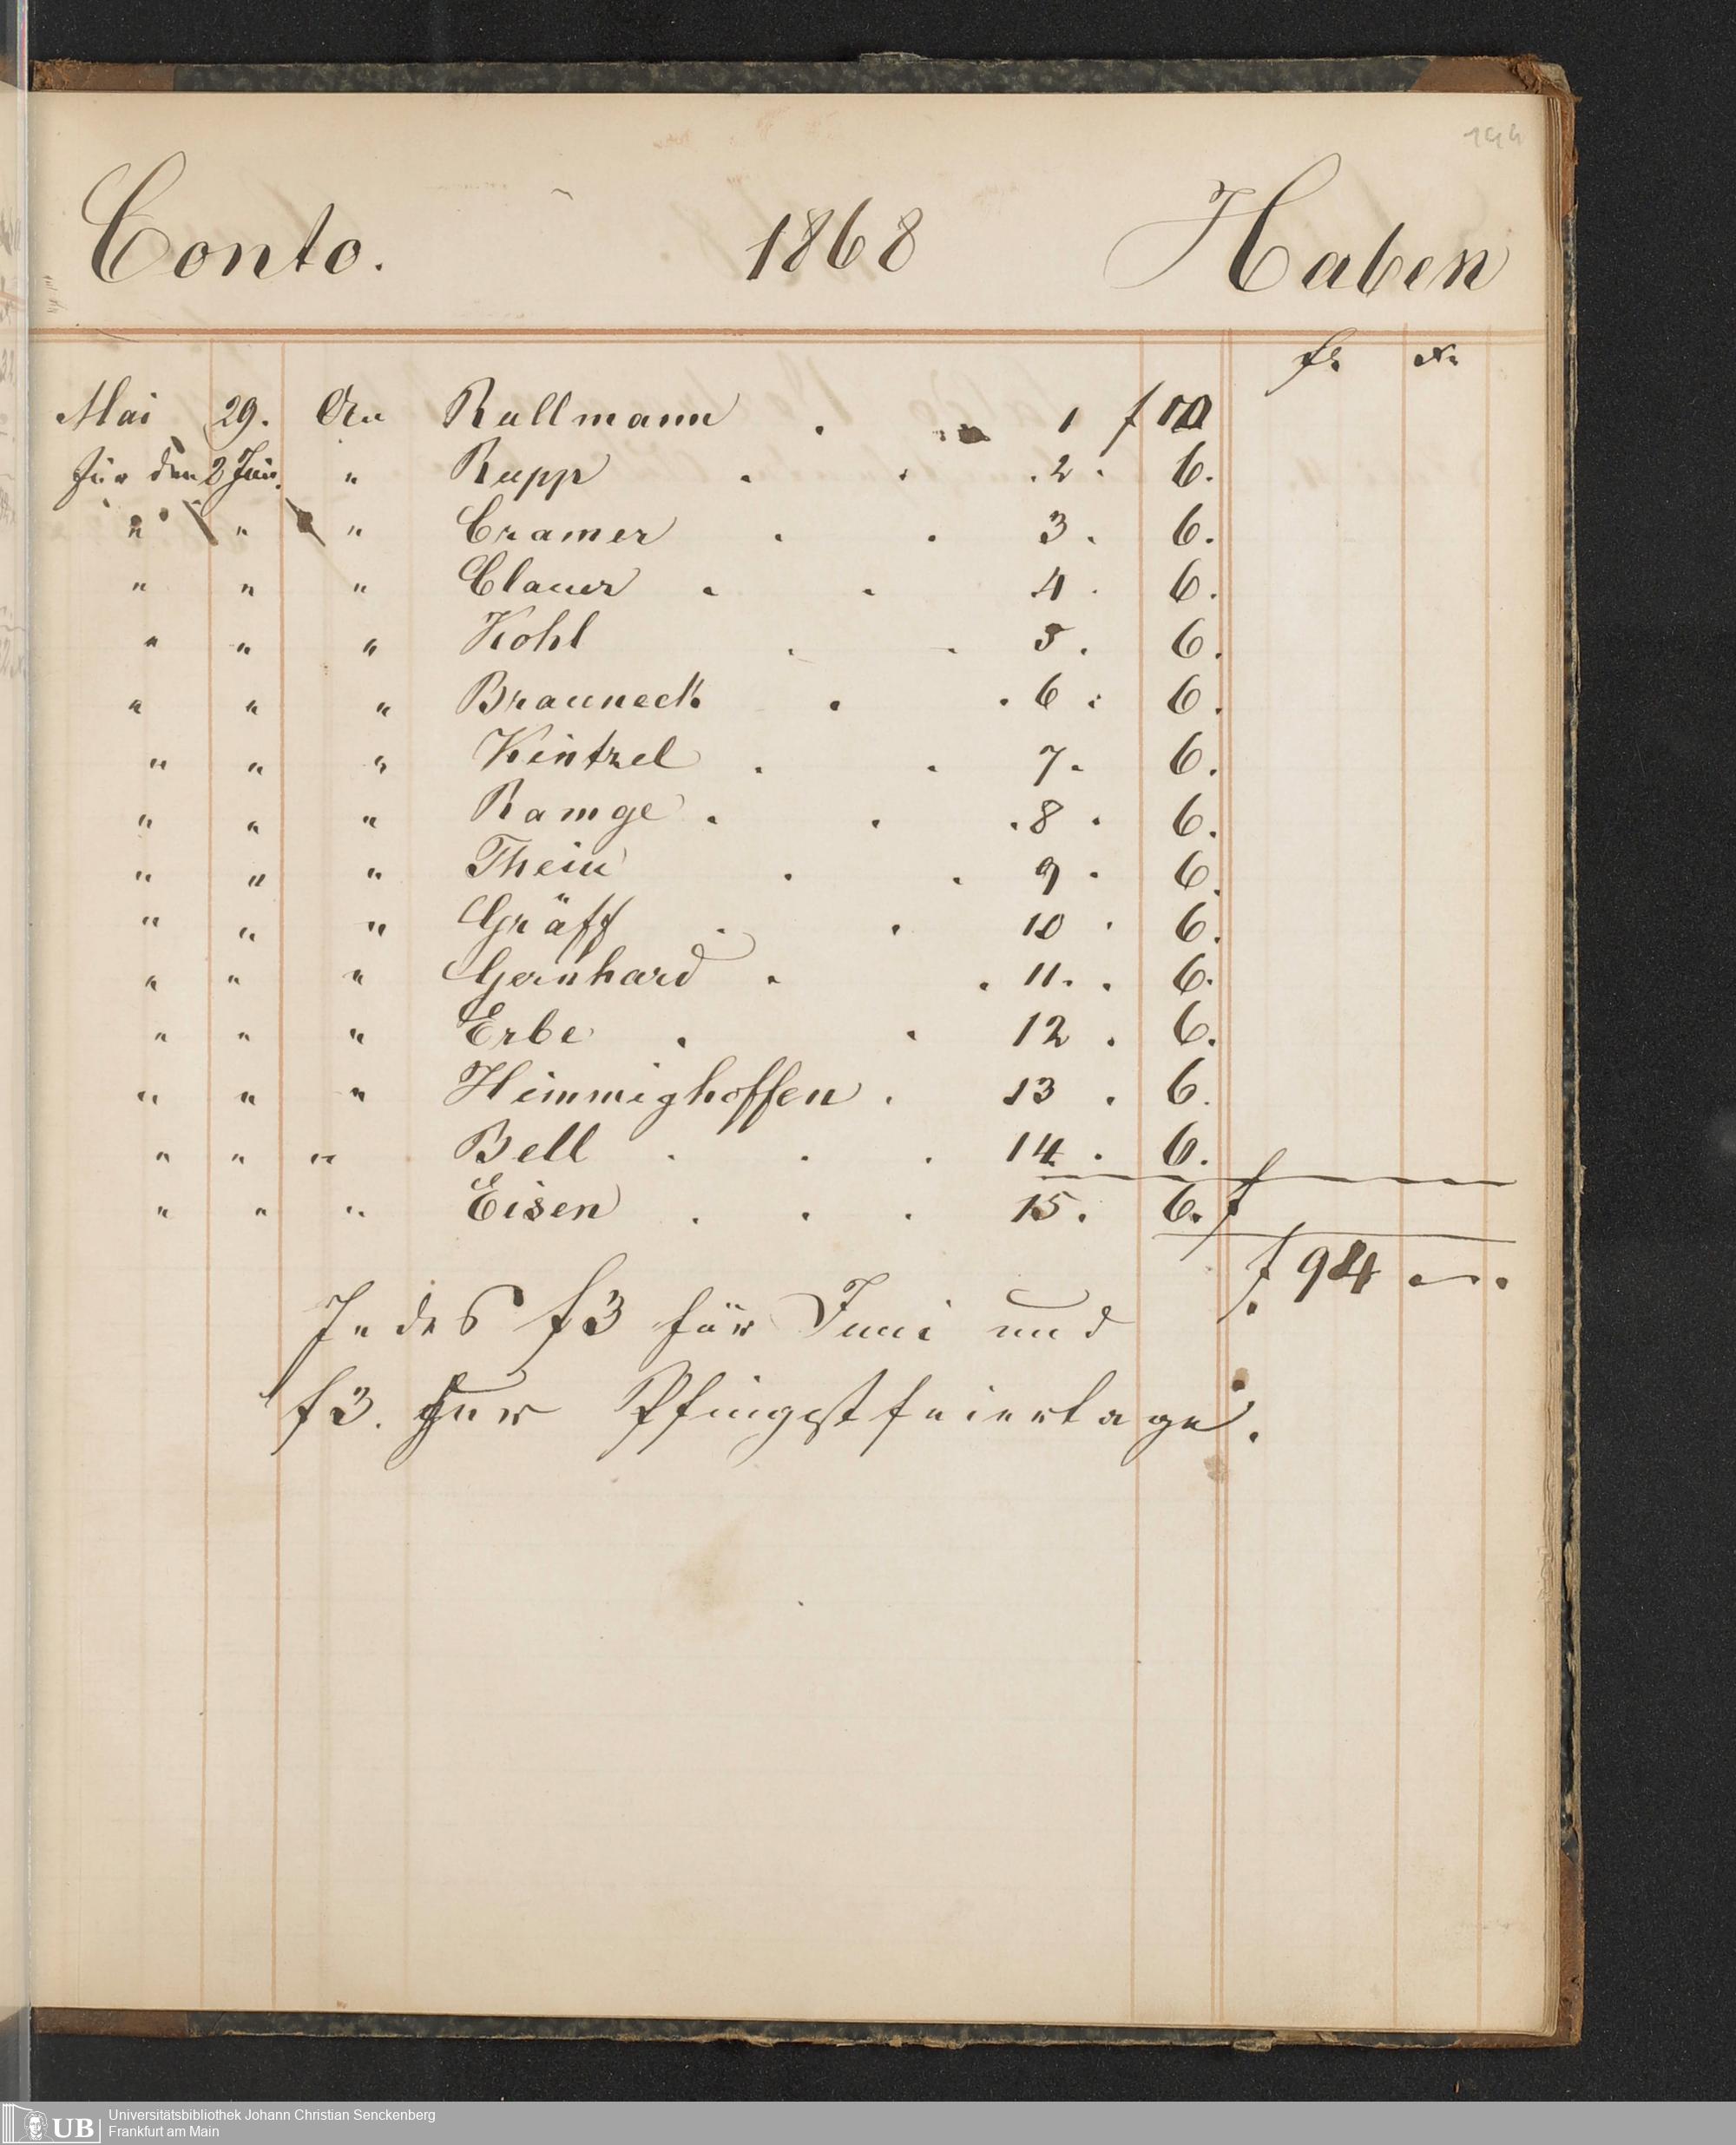 144
Conto. 1868 Haben
fl. x.
Mai 29. An Rullmann . 1 f 10
für den 2 Juni " Rupp . . . 2 . 6.
" " " Cramer . . 3 . 6.
" " " Clauer . . 4 . 6.
" " " Kohl . . 5 . 6.
" " " Brauneck . . 6 . 6.
" " " Kintzel . . 7 . 6.
" " " Ramge . . . 8 . 6.
" " " Thein . . 9 . 6.
" " " Gräff . . 10 . 6.
" " " Gernhard . . 11 . . 6.
" " " Erbe . . 12 . 6.
" " " Himmighoffen . 13 . 6.
" " " Bell . . . 14 . 6.
" " " Eisen . . . 15 . 6. f
f 94 — .
Jedes f 3 für Juni und
f 3. zur Pfingstfeiertage.
UB Universitätsbibliothek Johann Christian Senckenberg
Frankfurt am Main